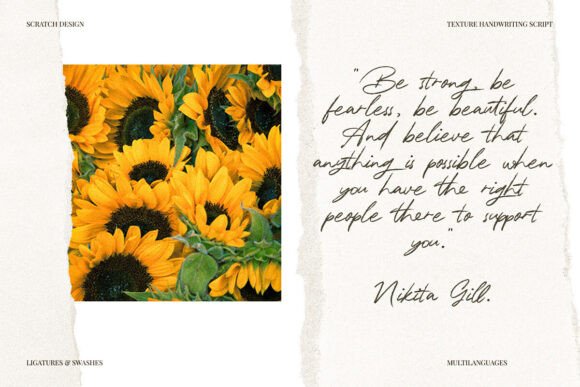 SCRATCH DESIGN
TEXTURE HANDWRITING SCRIPT
"Be strong, be
fearless, be beautiful.
And believe that
anything is possible when
you have the right
people there to support
you."
Nikita Gill.
LIGATURES & SWASHES
MULTILANGUAGES